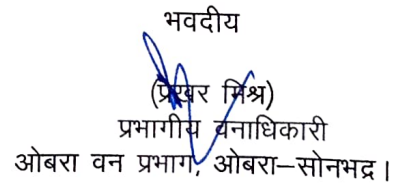 भवदीय
(प्रखर मिश्र)
प्रभागीय वनाधिकारी
ओबरा वन प्रभाग, ओबरा–सोनभद्र।